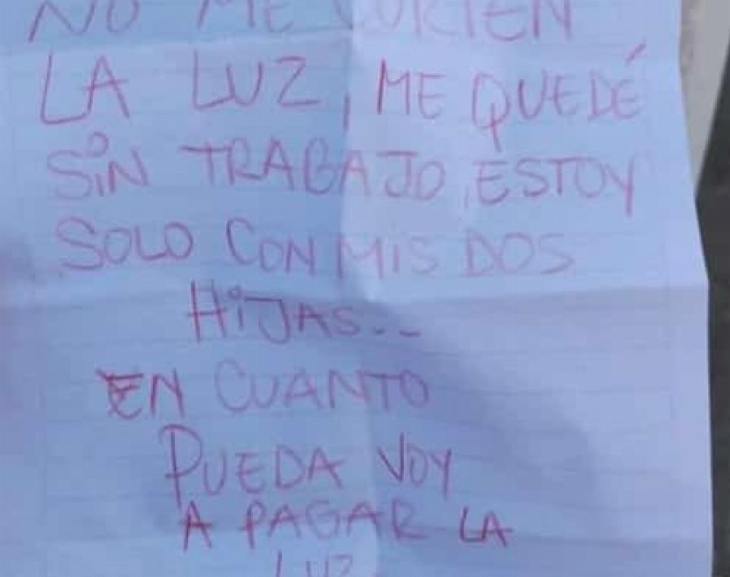 NO ME CORTEN
LA LUZ, ME QUEDÉ
SiN TRABAJO, ESTOY
SOLO CON MIS DOS
HiJAS...
EN CUANTO
PUEDA VOY
A PAGAR LA
LUZ